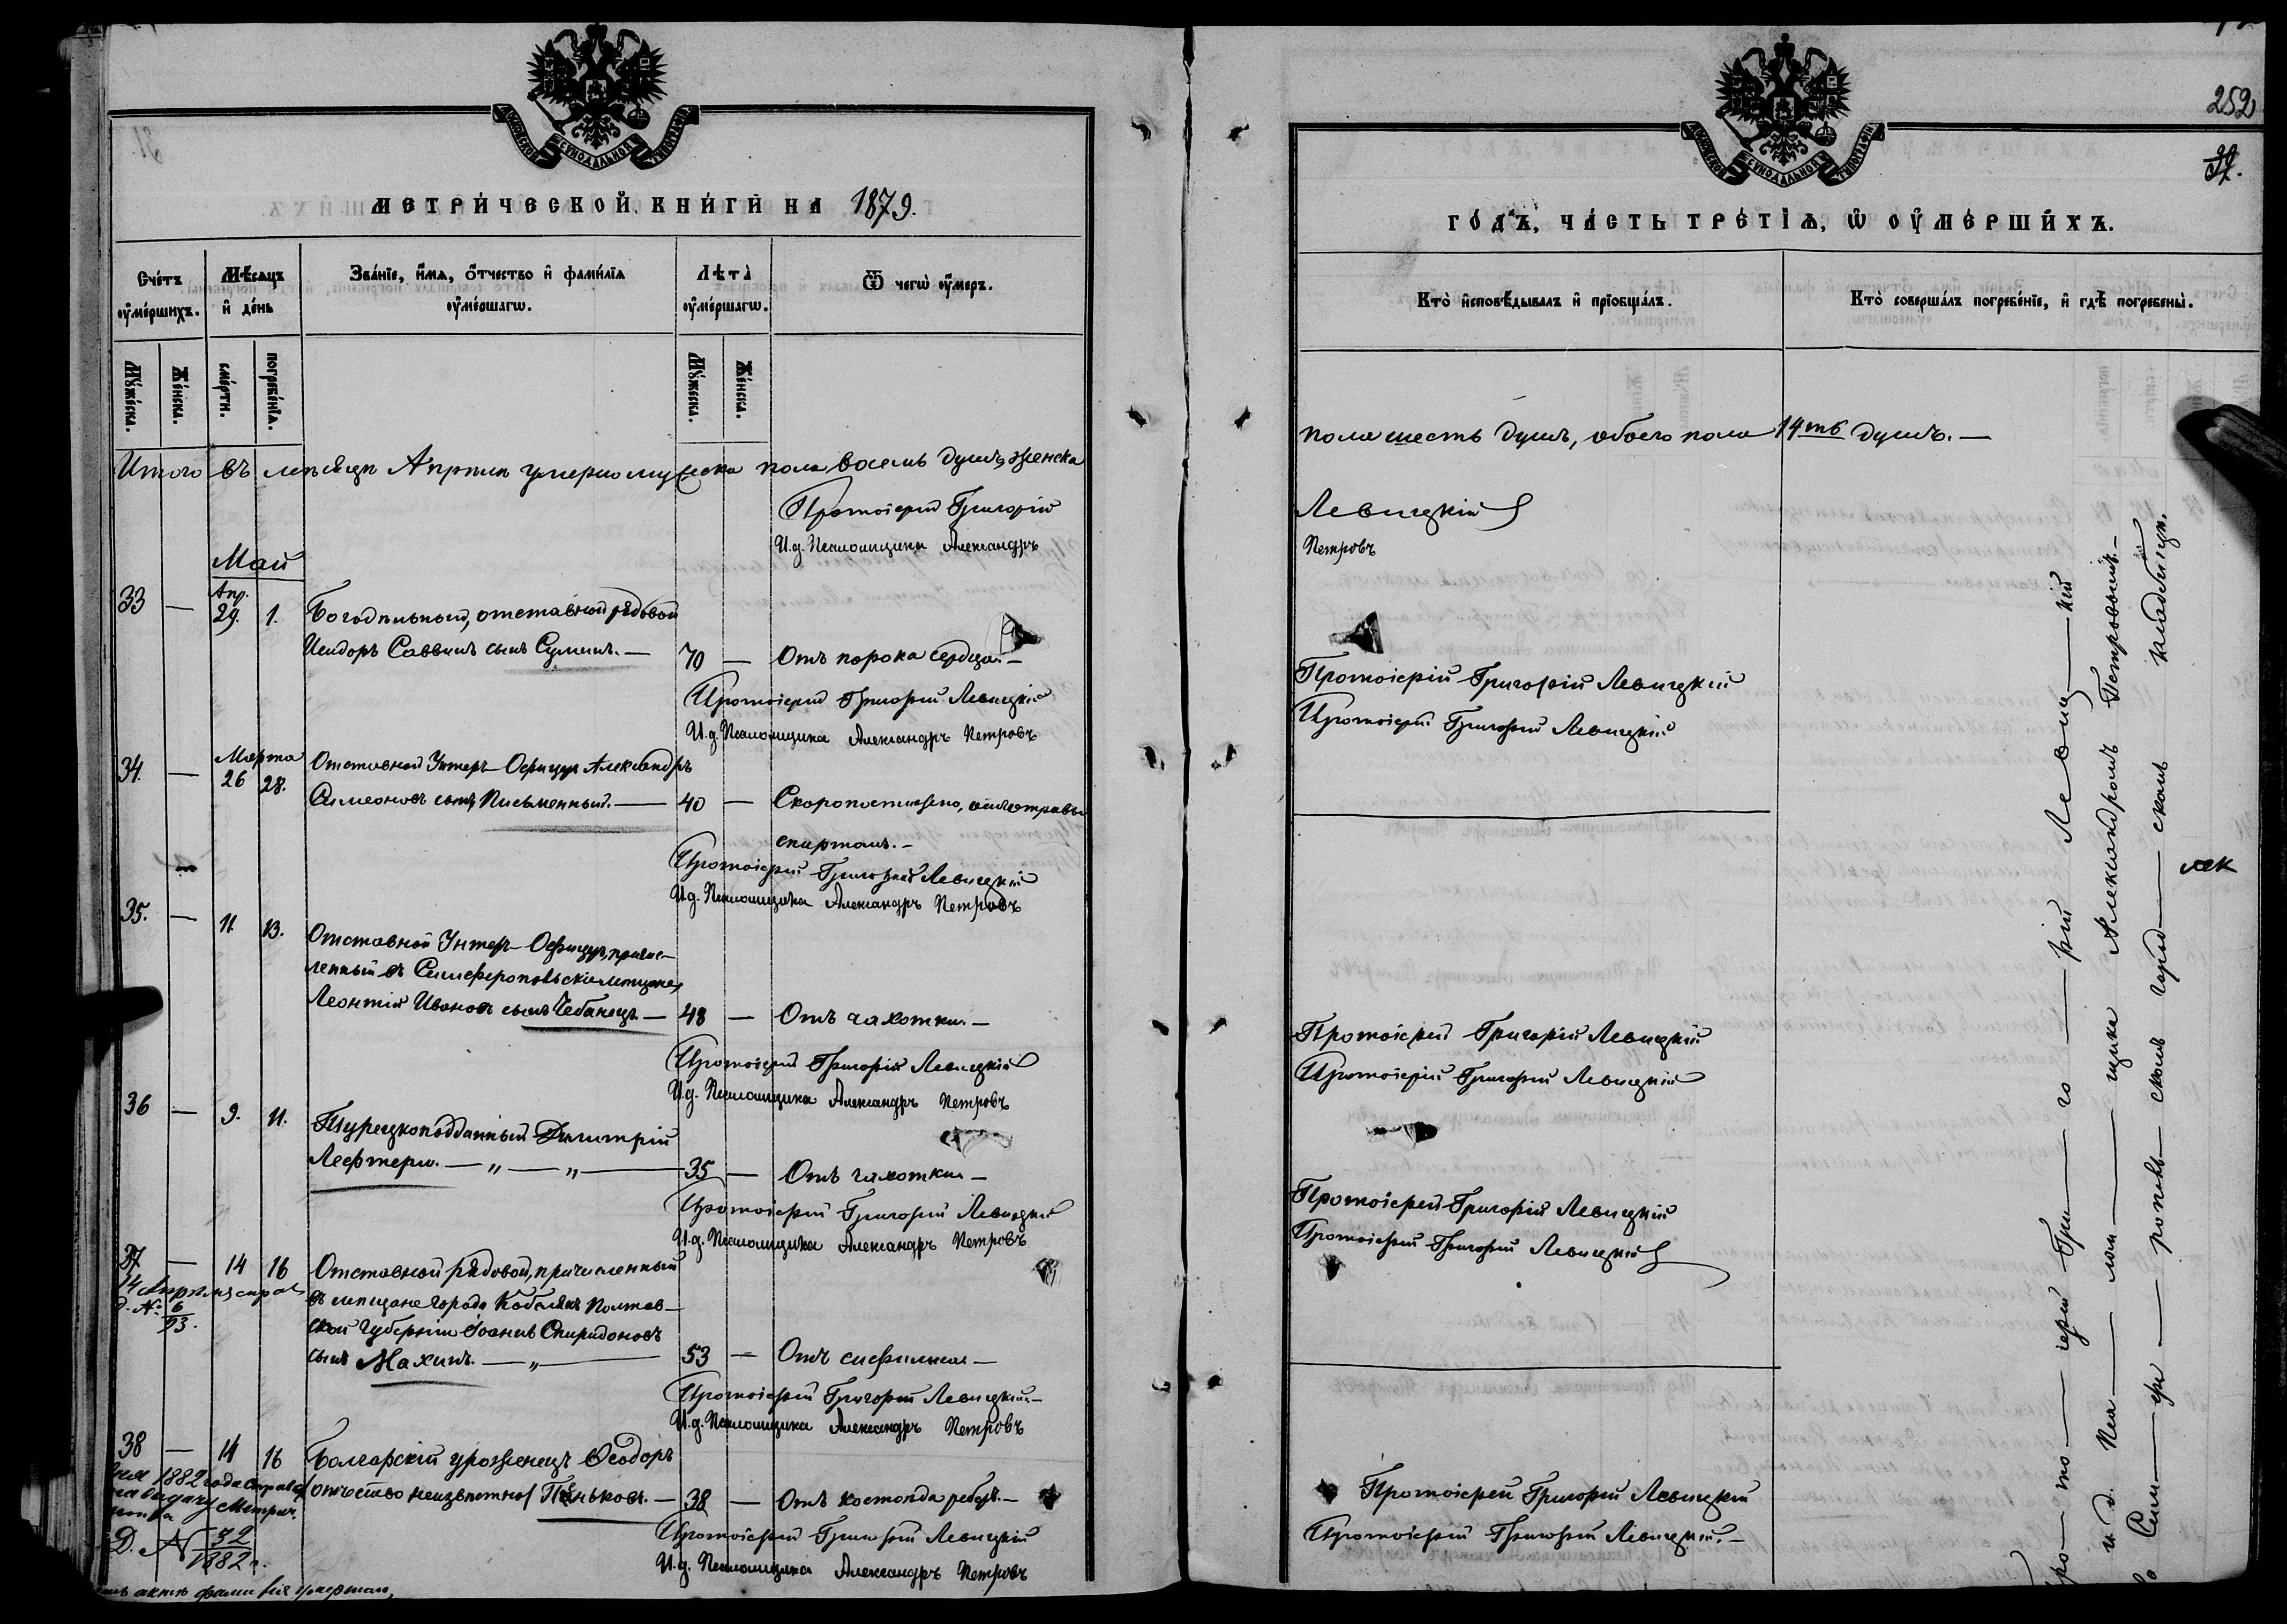 МОСКОВСКОЙ СѴНОДАЛЬНОЙ ТИПОГРАФІИ
МЕТРИ́ЧЕСКОЙ КНИ́ГИ НА 1879.
Сче́тъ ᲂу҆ме́ршихъ.
Мѣ́сяцъ и҆ де́нь
Зва́нїе, и҆́мѧ, ѻ҆́тчество и҆ фами́лїѧ ᲂу҆ме́ршагѡ.
Лѣта̀ ᲂу҆ме́ршагѡ.
Ѿ чегѡ̀ ᲂу҆́меръ.
Мꙋ́жеска.
Же́нска.
сме́рти.
погребе́нїѧ.
Мꙋ́жеска.
Же́нска.
Итого въ мѣсяцѣ Апрѣлѣ умерло мужеска пола восемь душъ, женска
Протоіерей Григорій
И.д. Псаломщика Александръ
Май
33 — Апр. 29. 1. Богодѣльный, отставной рядовой
Исидоръ Саввинъ сынъ — 70 — Отъ порока сердца. —
Протоіерей Григорій Левицкій
И.д. Псаломщика Александръ Петровъ
34. — Марта 26 28. Отставной Унтеръ-Офицеръ Александръ
Симеоновъ сынъ Письменный. — 40 — Скоропостижно, отъ отравы
спиртомъ. —
Протоіерей Григорій Левицкій
И.д. Псаломщика Александръ Петровъ
35. — 11. 13. Отставной Унтеръ-Офицеръ, причис-
ленный въ Симферопольскіе мѣщане,
Леонтій Ивановъ сынъ Чебанецъ — 48 — Отъ чахотки. —
Протоіерей Григорій Левицкій
И.д. Псаломщика Александръ Петровъ
36 — 9. 11. Турецкоподданный Димитрій
Лефтери. — „ — „ — 35 — Отъ чахотки —
Протоіерей Григорій Левицкій
И.д. Псаломщика Александръ Петровъ
37 — 14 16 Отставной рядовой, причисленный
въ мѣщане города Кобелякъ Полтав-
ской губерніи Іоаннъ Спиридоновъ
сынъ Махинъ. — „ — 53 — Отъ сифилиса —
14 Апрѣля
д. № 6/93.
Протоіерей Григорій Левицкій. —
И.д. Псаломщика Александръ Петровъ
38 — 14 16 Болгарскій уроженецъ Ѳеодоръ
(отчество неизвѣстно) Пеньковъ. — 38 — Отъ костоѣда ребръ. —
1882 года
на выдачу Метрич.
Д. № 32/1882 г.
Протоіерей Григорій Левицкій
И.д. Псаломщика Александръ Петровъ
МОСКОВСКОЙ СѴНОДАЛЬНОЙ ТИПОГРАФІИ
252
ГО́ДЪ, ЧА́СТЬ ТРЕ́ТЇѦ, Ѡ҆ ОУ҆МЕ́РШИХЪ.
Кто̀ и҆сповѣ́дывалъ и҆ прїобща́лъ.
Кто̀ соверша́лъ погребе́нїе, и҆ гдѣ̀ погребены̀.
пола шесть душъ, обоего пола 14ть душъ. —
Левицкій
Петровъ
Протоіерей Григорій Левицкій
Протоіерей Григорій Левицкій
Протоіерей Григорій Левицкій
Протоіерей Григорій Левицкій
Протоіерей Григорій Левицкій
Протоіерей Григорій Левицкій
Протоіерей Григорій Левицкій
Протоіерей Григорій Левицкій. —
про — то — іерей Гри — го — рій Левиц — кій
и. д. Пса — лом — щика Александромъ Петровымъ. —
Сим — фе — рополь — скомъ город — скомъ кладбищѣ.